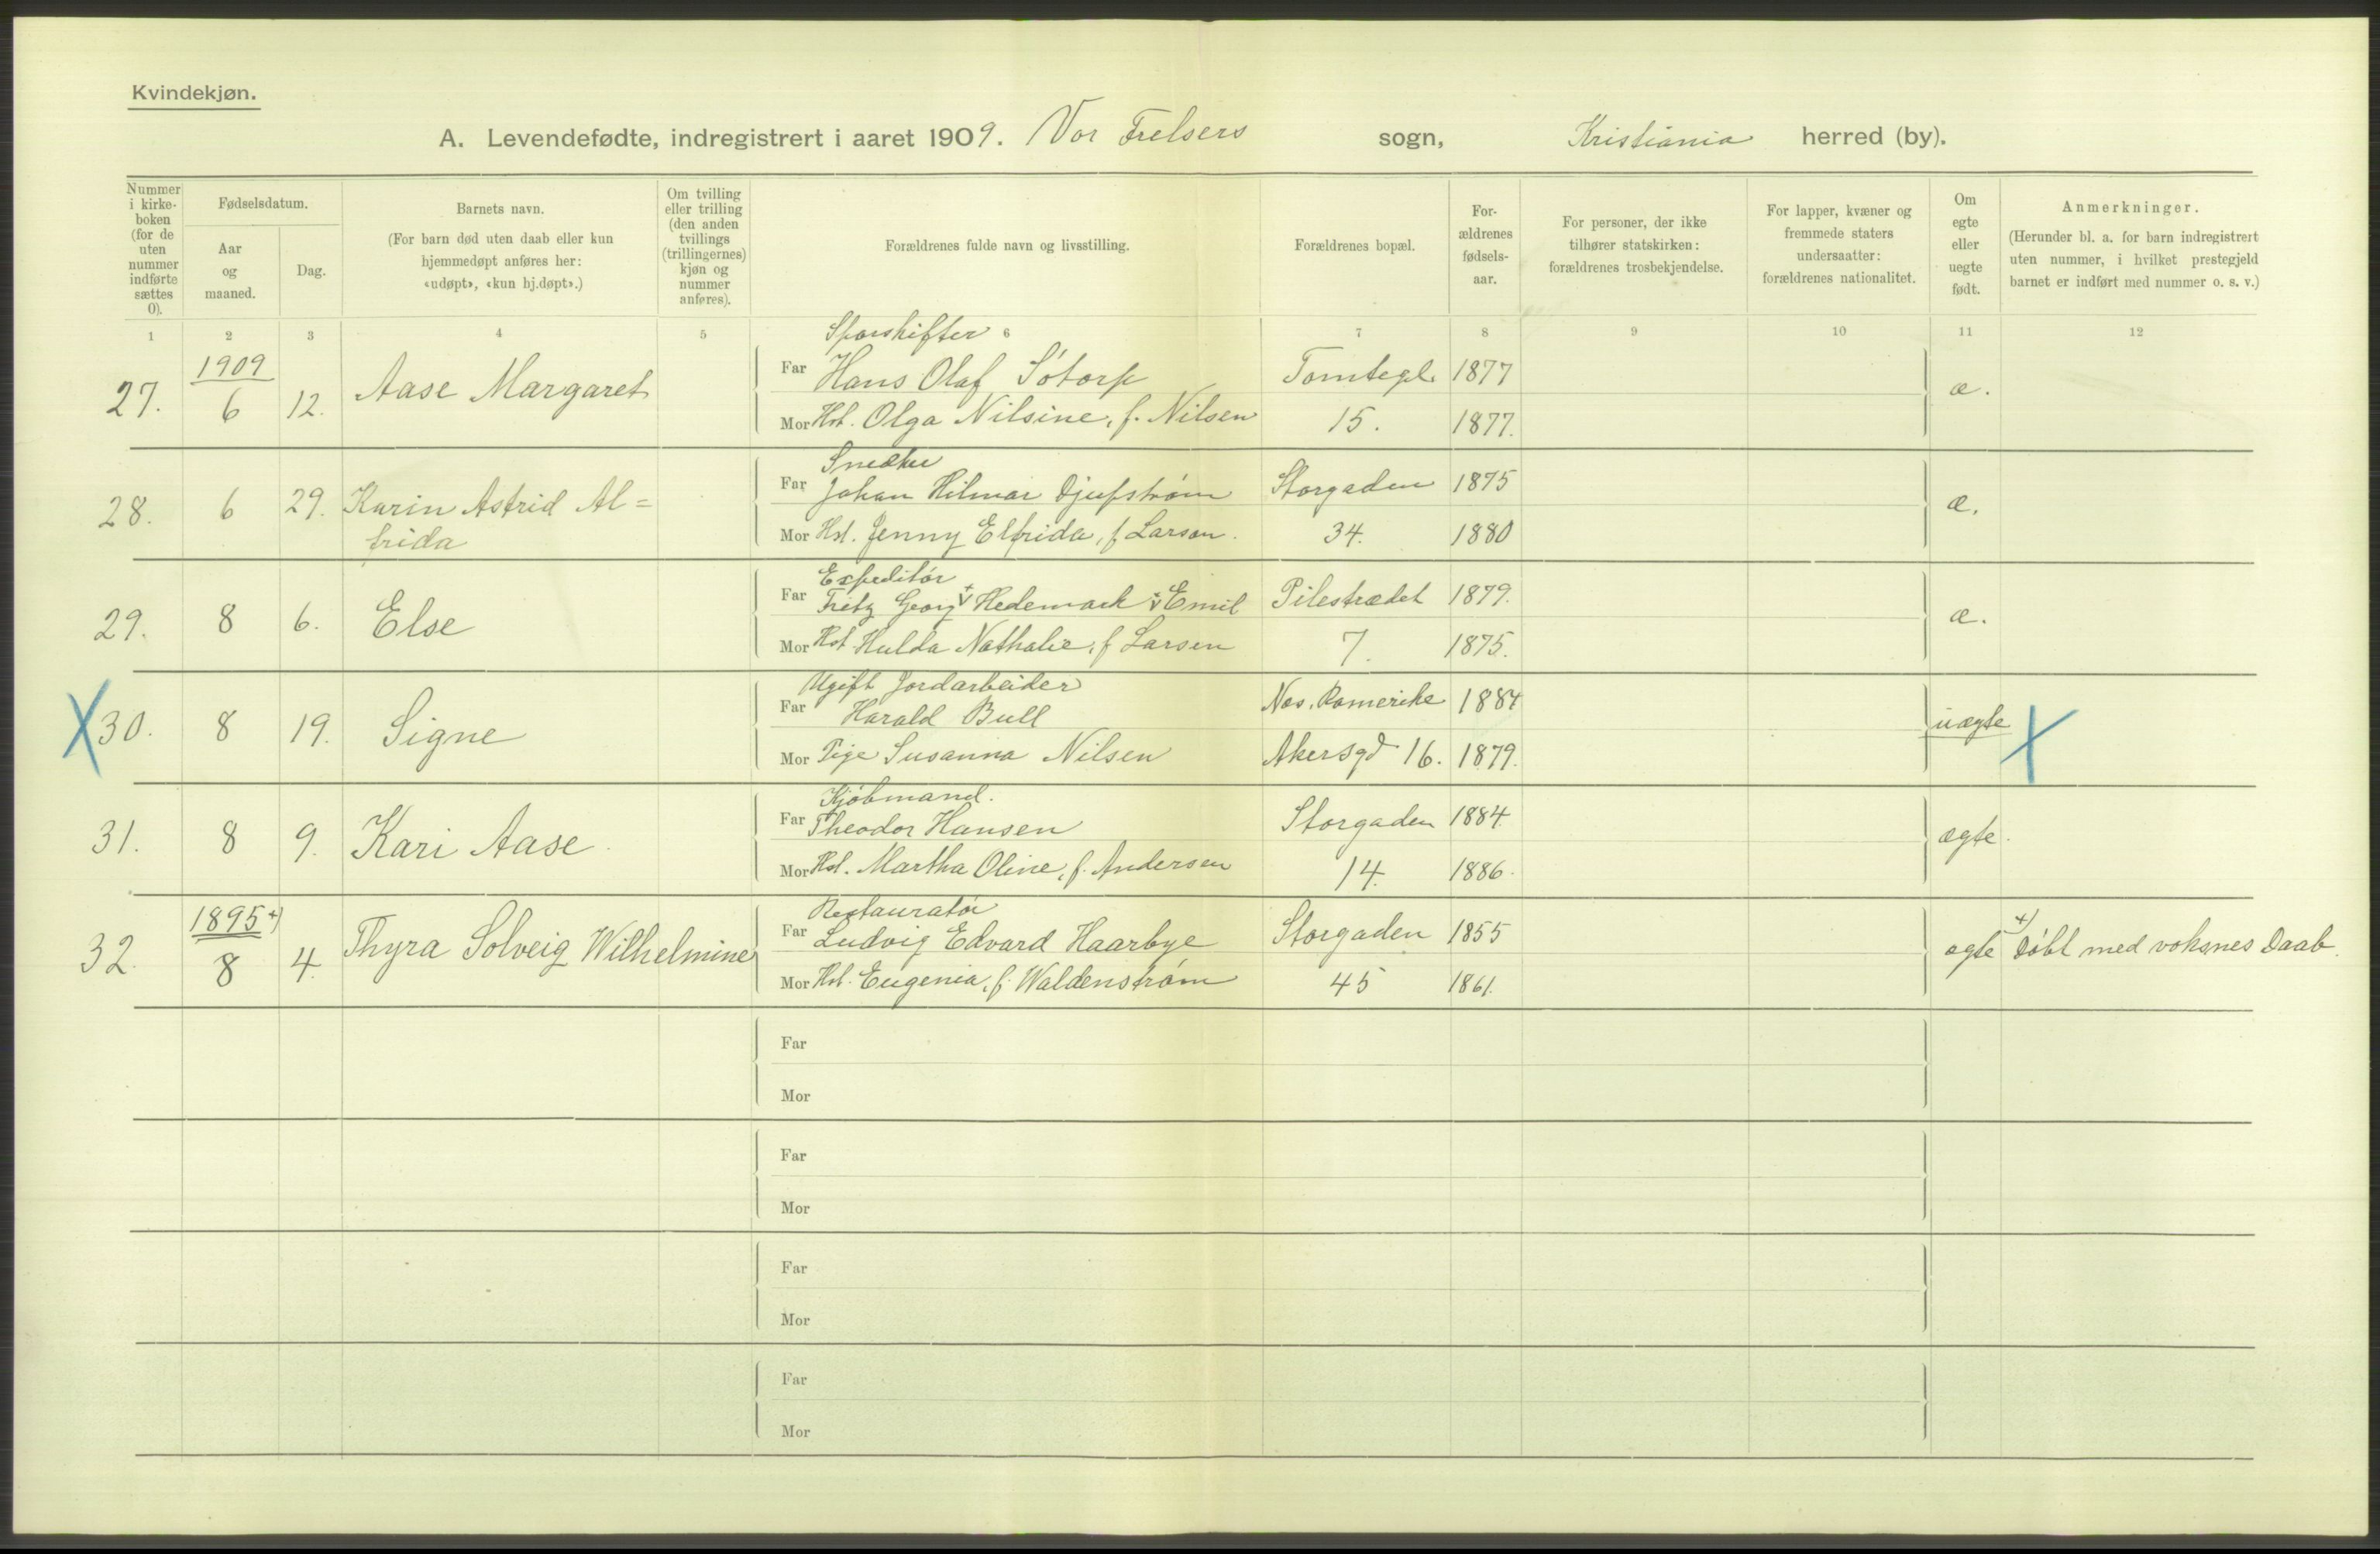 Kvindekjøn.
A. Levendefødte, indregistrert i aaret 1909. Vor Frelsers sogn, Kristiania herred (by).
Nummer i kirke-boken (for de uten nummer indførte sættes 0).
Fødselsdatum.
Aar og maaned.
Dag.
Barnets navn.
(For barn død uten daab eller kun hjemmedøpt anføres her: «udøpt», «kun hj.døpt».)
Om tvilling eller trilling (den anden tvillings (trillingernes) kjøn og nummer anføres).
Forældrenes fulde navn og livsstilling.
Forældrenes bopæl.
For-ældrenes fødsels-aar.
For personer, der ikke tilhører statskirken: forældrenes trosbekjendelse.
For lapper, kvæner og fremmede staters undersaatter: forældrenes nationalitet.
Om egte eller uegte født.
Anmerkninger.
(Herunder bl. a. for barn indregistrert uten nummer, i hvilket prestegjeld barnet er indført med nummer o. s. v.)
1 2 3 4 5 6 7 8 9 10 11 12
Sporskifter
27. 1909 6 12. Aase Margaret Far Hans Olaf Sótorp Tomtegd. 1877 æ.
Mor Hst. Olga Nilsine, f. Nilsen 15. 1877.
Snedker
28. 6 29. Karin Astrid Al= Far Johan Hilmar Djufstrøm Storgaden 1875 æ.
frida Mor Hst. Jenny Elfrida, f Larson. 34. 1880
Expeditór
29. 8 6. Else Far Fritz Georg Hedemark Emil Pilestrædet 1879. æ.
Mor Hst Hulda Nathalie, f Larsen 7. 1875.
Ugift Jordarbeider
X 30. 8 19. Signe Far Harald Bull Nes. Romerike 1884 uægte X
Mor Pige Susanna Nilsen Akersgd 16. 1879.
Kjóbmand.
31. 8 9. Kari Aase. Far Theodor Hansen Storgaden 1884 ægte.
Mor Hst. Martha Oline, f. Andersen 14. 1886.
Restauratór
32. 1895 +) 8 4. Thyra Solveig Wilhelmine Far Ludvig Edvard Haarbye Storgaden 1855 ægte +) Dóbt med voksnes Daab.
Mor Hst. Eugenia, f. Waldenstróm 45 1861.
Far
Mor
Far
Mor
Far
Mor
Far
Mor